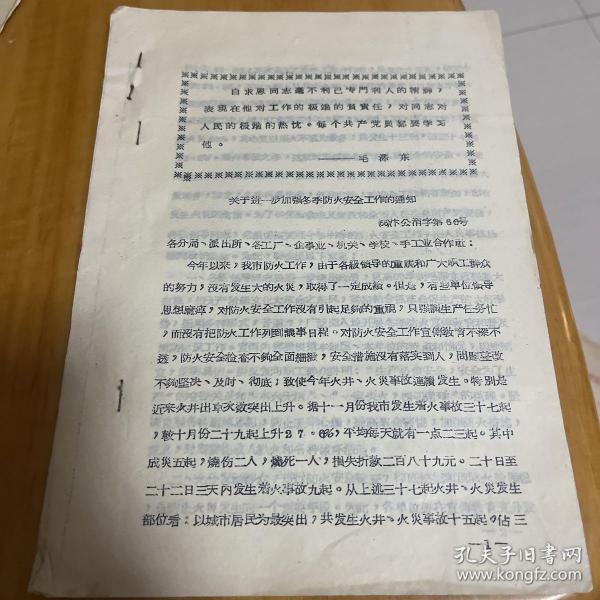 白求恩同志毫不利己专門利人的精神，
表現在他对工作的极端的負責任，对同志对
人民的极端的热忱。每个共产党員都要学习
他。
————毛澤东
关于进一步加强冬季防火安全工作的通知
公消字第66号
各分局、派出所、各工厂、企事业、机关、学校、手工业合作社：
今年以来，我市防火工作，由于各級領导的重視和广大职工群众
的努力，沒有发生大的火災，取得了一定成績。但是，有些单位領导
思想麻痹，对防火安全工作沒有引起足夠的重視，只強調生产任务忙
，而沒有把防火工作列到議事日程。对防火安全工作宣傳教育不深不
透，防火安全检查不夠全面細緻，安全措施沒有落实到人，問題整改
不夠坚决、及时、彻底；致使今年火井、火災事故連續发生。特別是
近来火井出現次数突出上升。据十一月份我市发生着火事故三十七起，
較十月份二十九起上升27·6%，平均每天就有一点二三起。其中
成災五起，燒伤二人，燒死一人，損失折款二百八十九元。二十日至
二十二日三天內发生着火事故九起。从上述三十七起火井、火災发生
部位看：以城市居民为最突出，共发生火井、火災事故十五起，佔三
—1—
孔夫子旧书网
www.kongfz.com